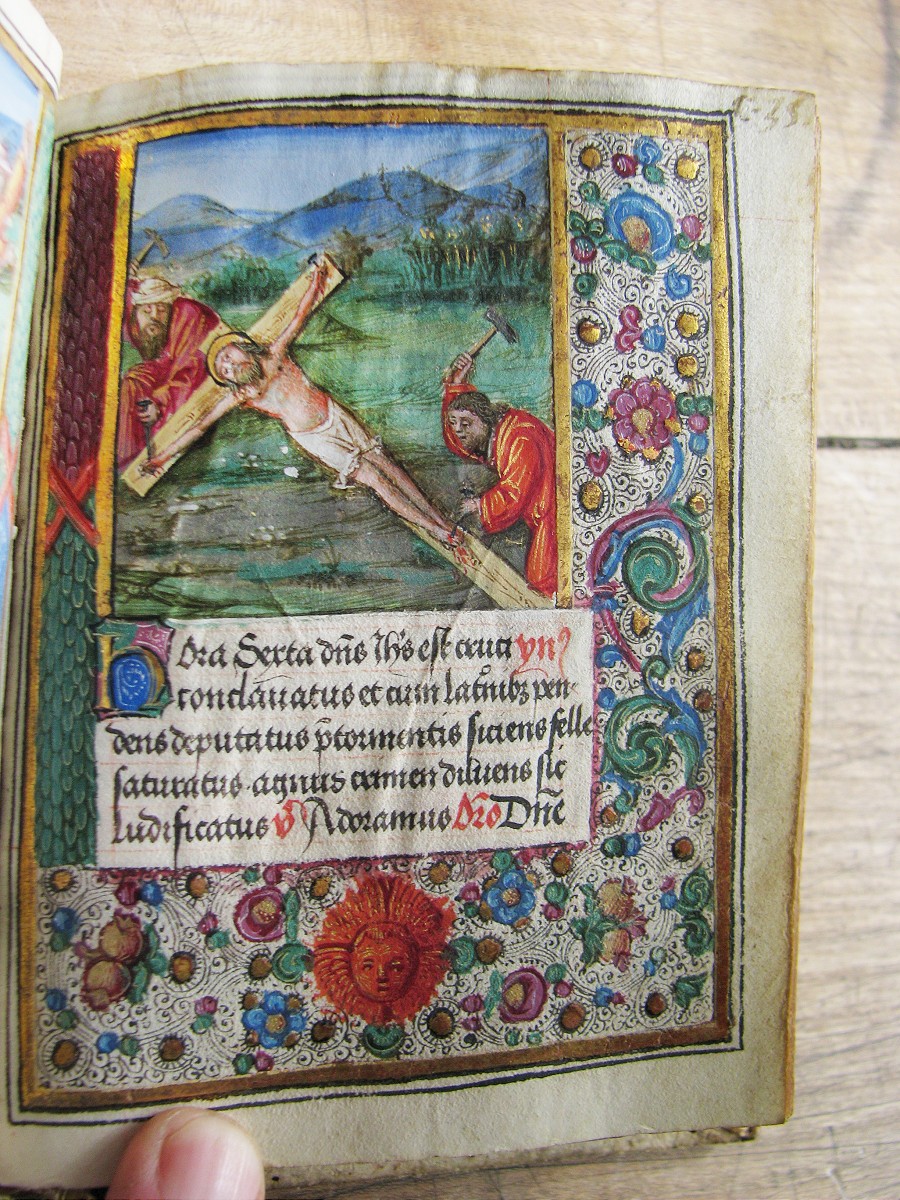 f. 35
Hora Sexta dñs ihs est cruci yñ
conclavatus et cum latroibz pen-
dens deputatus p̄ tormentis siciens felle
saturatus. agnus crimen diluens sic
ludificatus v̄ Adoramus Oro Dñe